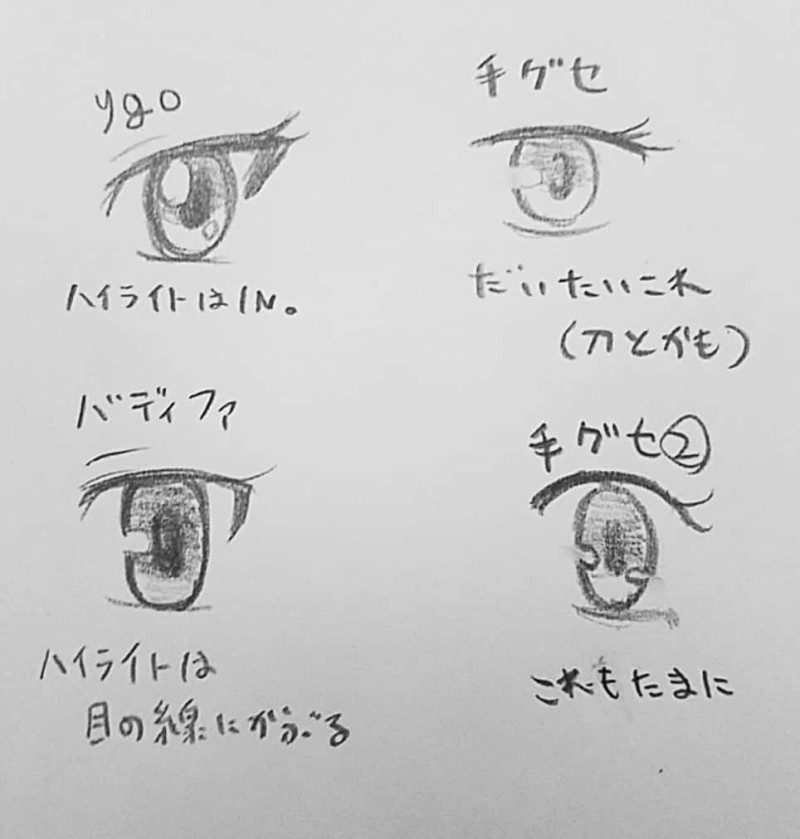 ygo
ハイライトはIN。
手グセ
だいたいこれ
(刀とかも)
バディファ
ハイライトは
目の線にかぶる
手グセ②
これもたまに